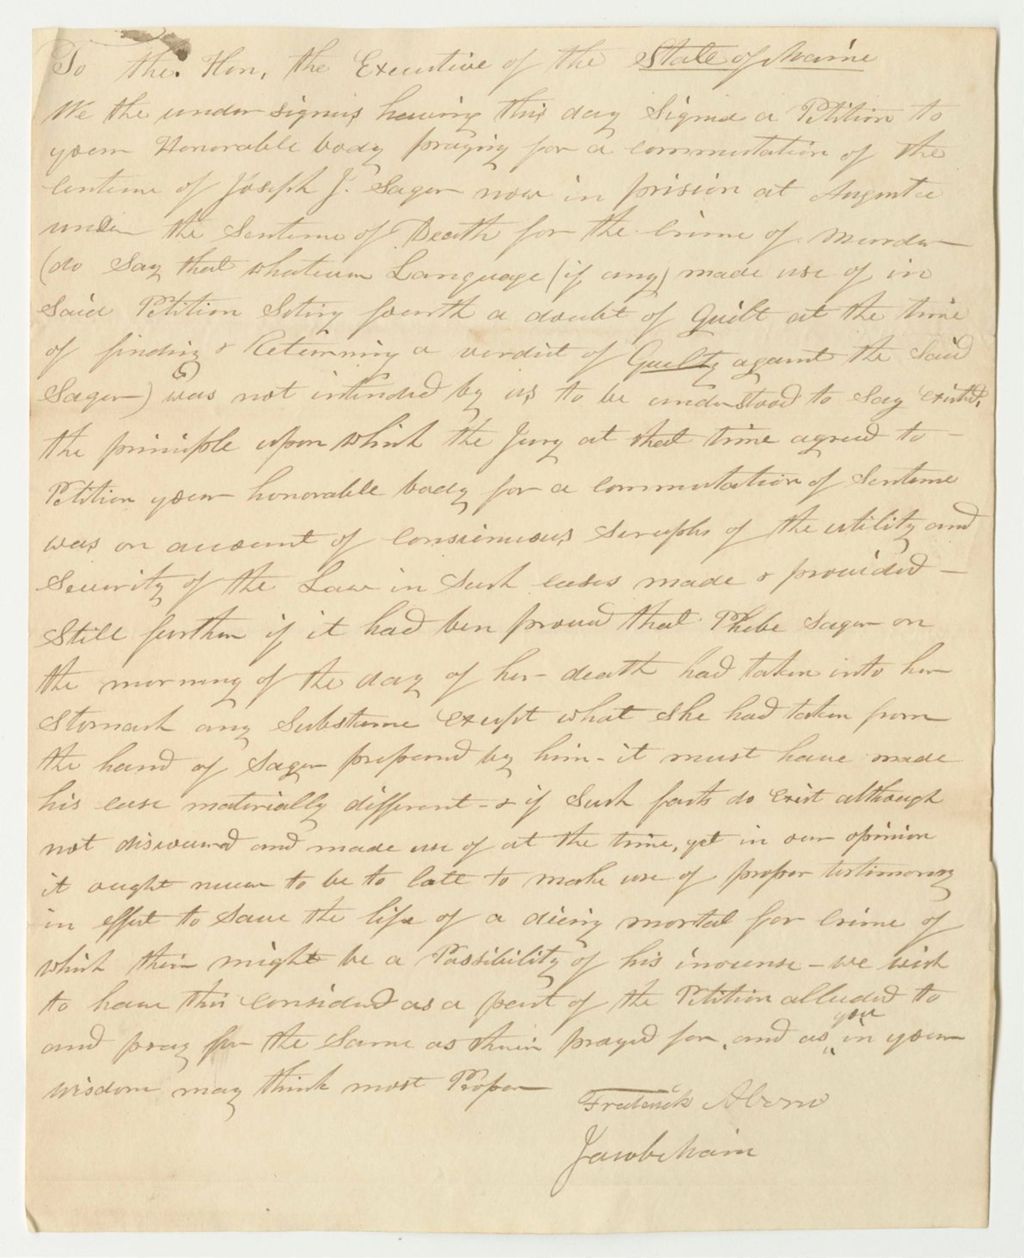 To the Hon, the Executive of the State of Maine
We the under signers having this day Signed a Petition to
your Honorable body praying for a commutation of the
Sentence of Joseph J. Sager now in prision at Augusta
under the Sentence of Death for the Crime of Murder
(do Say that whatever Language (if any) made use of in
Said Petition Seting fourth a doubt of Guilt at the time
of finding & Returning a verdict of Guilty against the Said
Sager) was not intended by us to be understood to Say existed,
the principle upon which the Jury at that time agreed to
Petition your honorable body for a commutation of Sentence
was on account of Consienuous Scruphs of the utility and
Security of the Law in Such cases made & provided -
Still further if it had ben proved that Phebe Sager on
the morning of the day of her death had taken into her
Stomach any Substance except what She had taken from
the hand of Sager prepared by him - it must have made
his case materially different - & if Such facts do exist although
not discovered and made use of at the time, yet in our opinion
it ought never to be to late to make use of proper testimony
in effect to Save the life of a dieing mortal for Crime of
which their might be a Possibility of his inocense - we wish
to have this considerd as a part of the Petition alluded to
and pray for the Same as their prayed for, and as you in your
wisdom may think most Proper
Frederick Aborn
Jacob Main